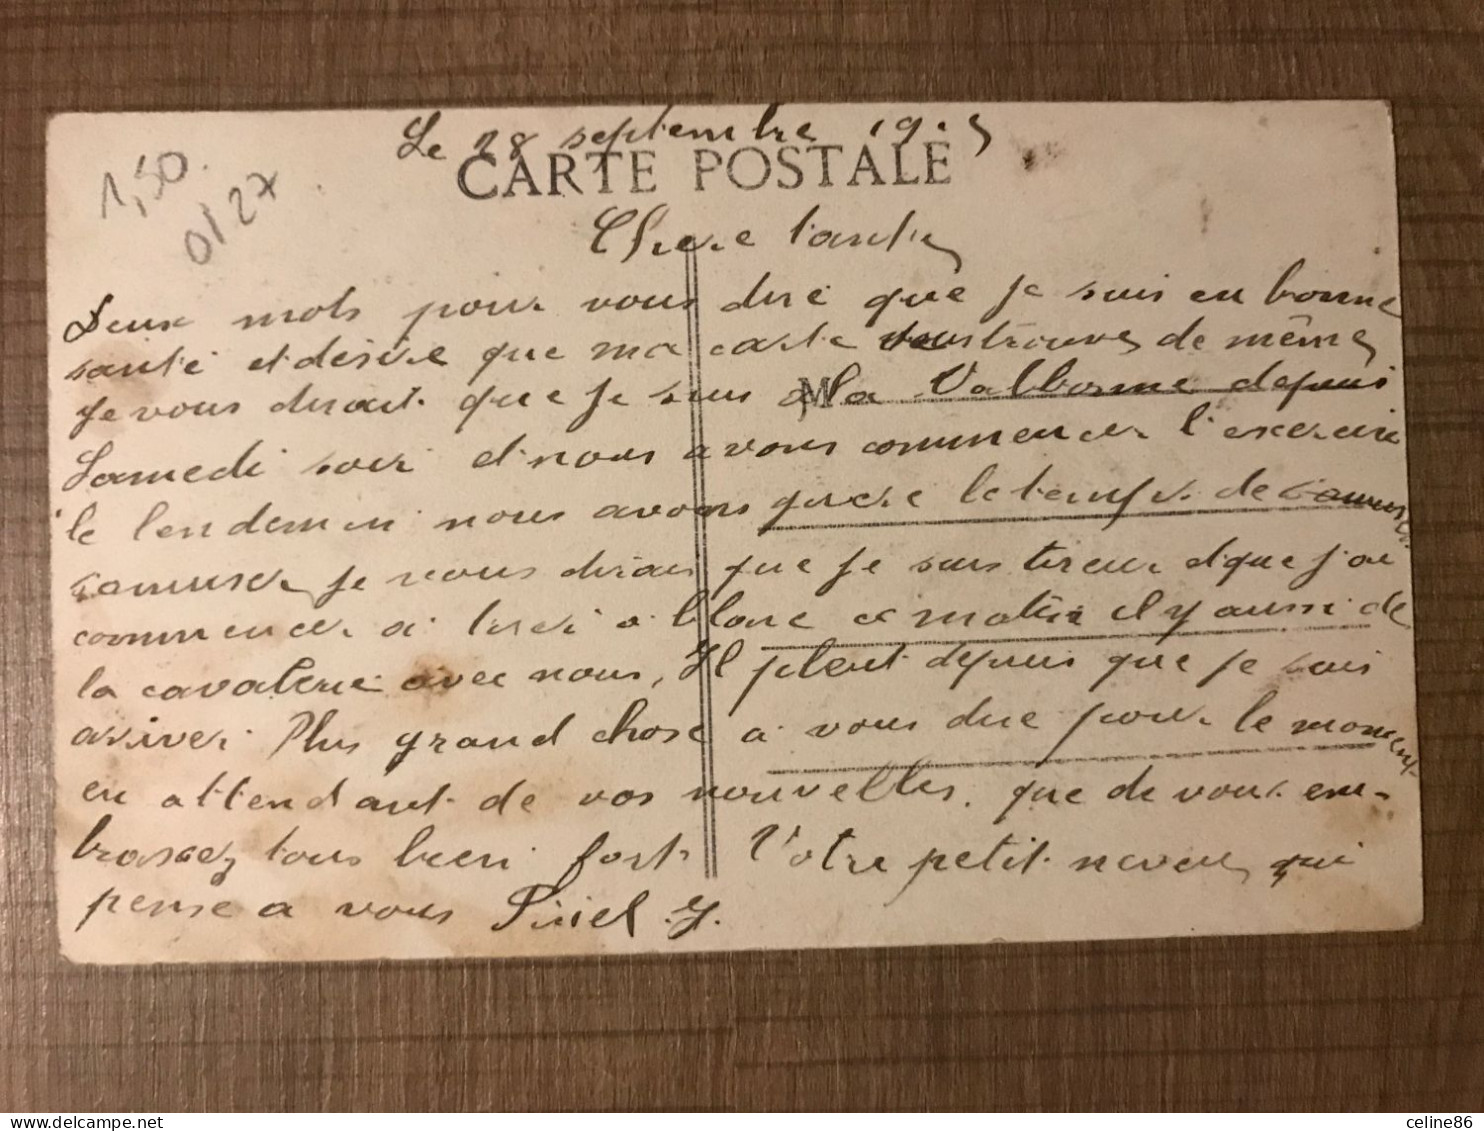 1,50.
01 27
Le 28 septembre 19.5
CARTE POSTALE
Chere tante
Deux mots pour vous dire que je suis en bonne
santé et désire que ma carte vous trouve de même
Je vous dirait que je suis a la Valbonne depuis
Samedi soir et nous avons commencer l'exercice
le lendemin nous avons guere le temps de
samuser je vous dirais que je suis tireur et que j'ai
commencer a tirer a blanc ce matin il y aussi de
la cavalerie avec nous, Il pleut depuis que je suis
ariver Plus grand chose a vous dire pour le moment
en attendant de vos nouvelles. que de vous em-
brassez tous bien fort Votre petit neveu qui
pense a vous J.
celine86